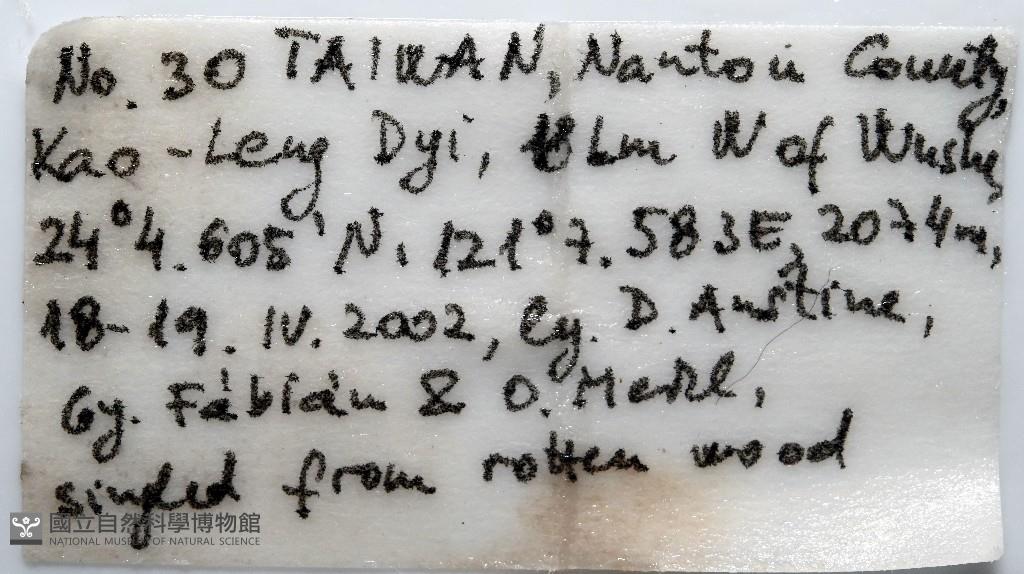 No. 30 TAIWAN, Nantou County,
Kao-Leng Dyi, 8 km W of Wushe,
24°4.605'N, 121°7.583E, 2074m,
18-19.IV.2002, leg. D. Anstine,
Gy. Fábián & O. Merkl,
singled from rotten wood
國立自然科學博物館
NATIONAL MUSEUM OF NATURAL SCIENCE